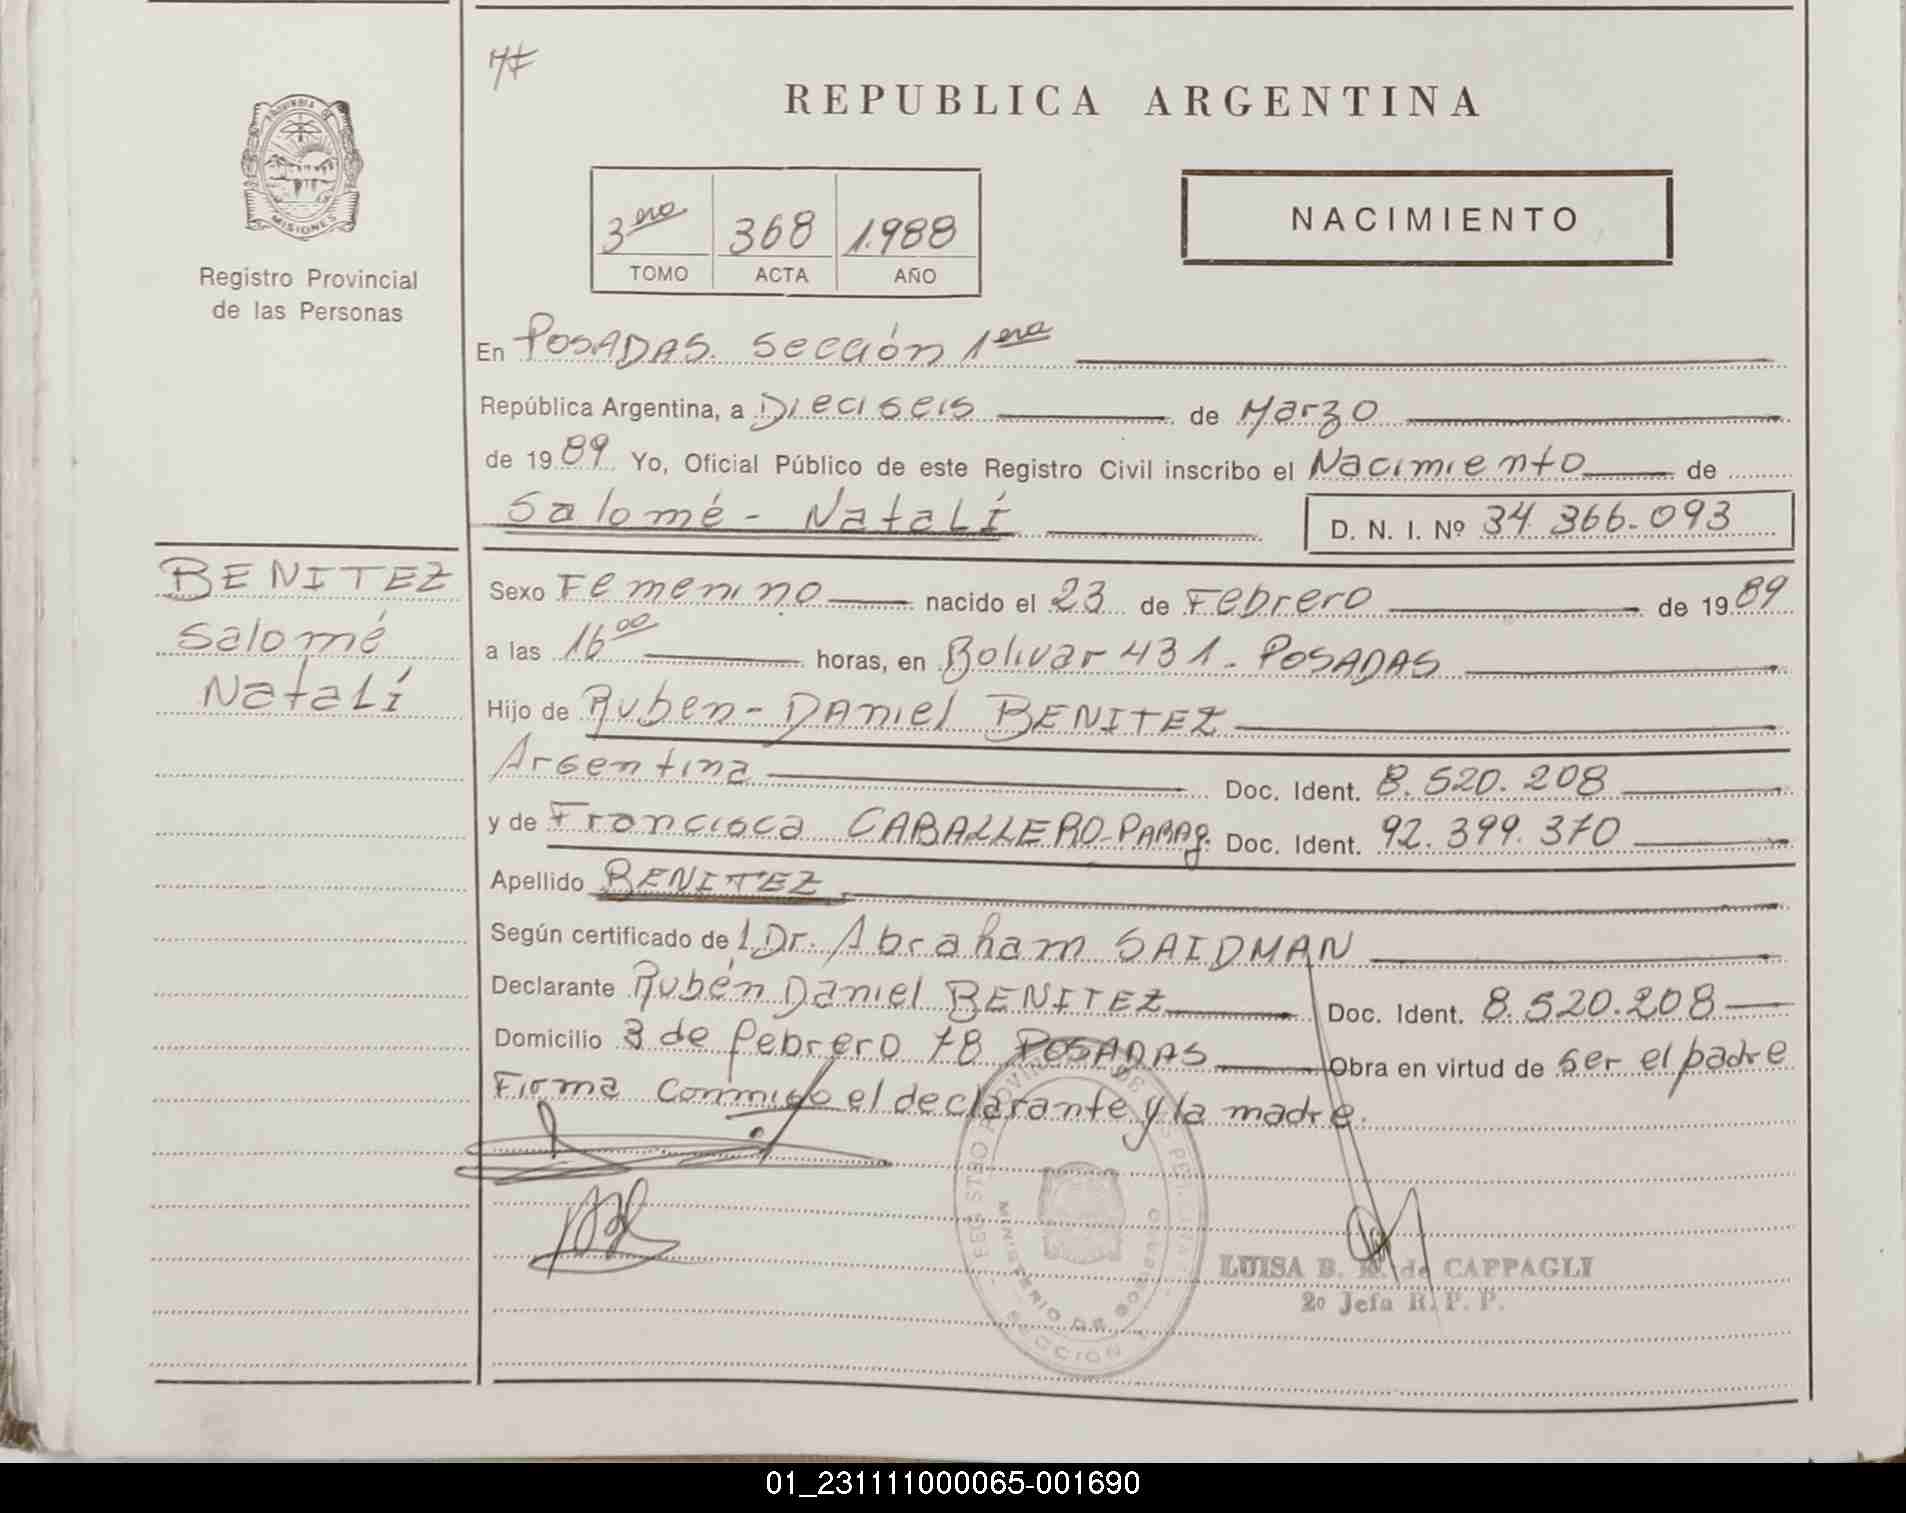 REPUBLICA ARGENTINA
PROVINCIA DE
MISIONES
Registro Provincial
de las Personas
3era 368 1.988
TOMO ACTA AÑO
NACIMIENTO
En POSADAS. Sección 1era
República Argentina, a Dieciseis de Marzo
de 1989 Yo, Oficial Público de este Registro Civil inscribo el Nacimiento de
Salomé - Natalí D. N. I. Nº 34.366.093
BENITEZ
Salomé
Natalí
Sexo Femenino nacido el 23 de Febrero de 1989
a las 16⁰⁰ horas, en Bolivar 431. POSADAS
Hijo de Ruben - Daniel BENITEZ
Argentina Doc. Ident. 8.520.208
y de Francisca CABALLERO - Parag. Doc. Ident. 92.399.370
Apellido BENITEZ
Según certificado de l Dr. Abraham SAIDMAN
Declarante Rubén Daniel BENITEZ Doc. Ident. 8.520.208
Domicilio 3 de febrero 78 POSADAS Obra en virtud de ser el padre
Firma Conmigo el declarante y la madre.
MINISTERIO DE GOBIERNO
SECCION
LUISA B. de CAPPAGLI
2º Jefa R. P. P.
01_231111000065-001690